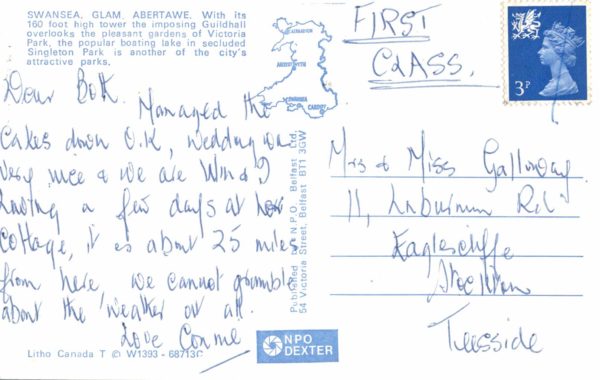 SWANSEA, GLAM, ABERTAWE. With its
160 foot high tower the imposing Guildhall
overlooks the pleasant gardens of Victoria
Park, the popular boating lake in secluded
Singleton Park is another of the city's
attractive parks.
Dear Both.
Managed the
Cakes down O.K, wedding was
very nice & we are Wm & I
having a few days at her
Cottage, it is about 25 miles
from here, we cannot grumble
about the weather at all.
Love Connie
Litho Canada T © W1393 - 68713C
ABERYSTWYTH
SWANSEA
CARDIFF
Published by N.P.O. Belfast Ltd.
54 Victoria Street, Belfast BT1 3GW
NPO
DEXTER
FIRST
CLASS.
3P
Mrs & Miss Galloway
11, Laburnum Rd
Eaglescliffe
Stockton
Teesside